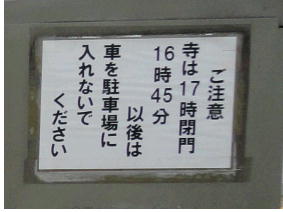 ご注意
寺は17時閉門
16時45分
以後は
車を駐車場に
入れないで
ください